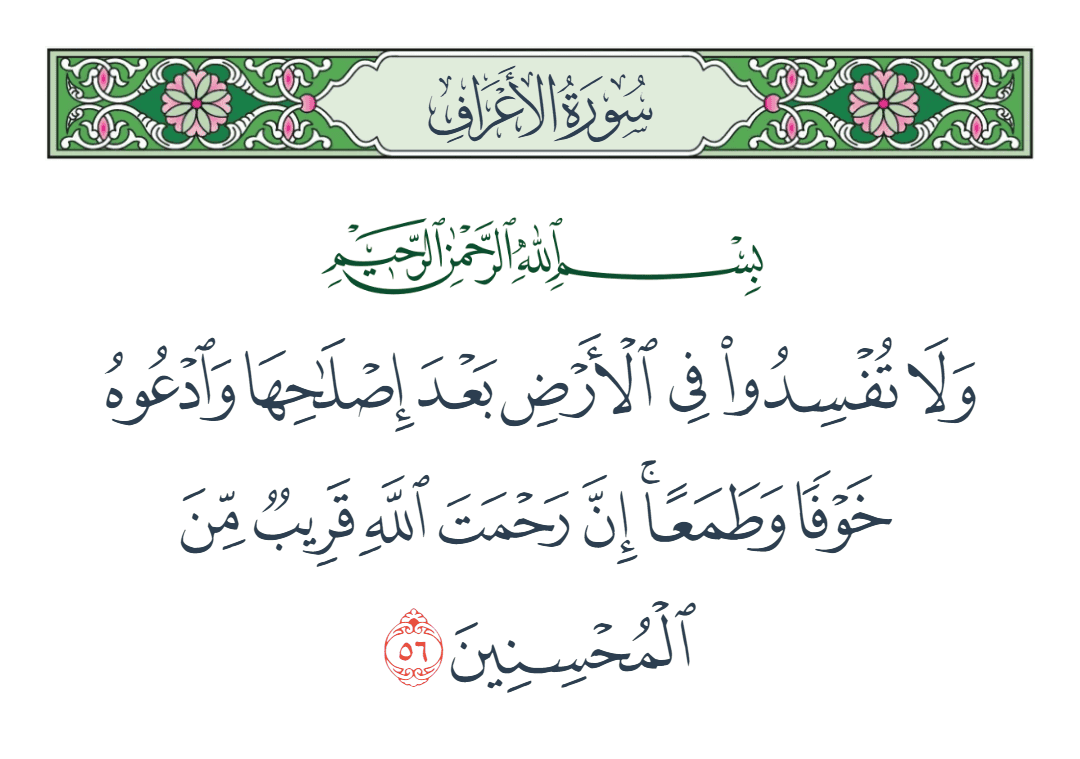 سُورَةُ الأَعْرَافِ
بِسْمِ ٱللَّهِ ٱلرَّحْمَٰنِ ٱلرَّحِيمِ
وَلَا تُفْسِدُوا۟ فِى ٱلْأَرْضِ بَعْدَ إِصْلَٰحِهَا وَٱدْعُوهُ
خَوْفًا وَطَمَعًا ۚ إِنَّ رَحْمَتَ ٱللَّهِ قَرِيبٌ مِّنَ
ٱلْمُحْسِنِينَ ٥٦